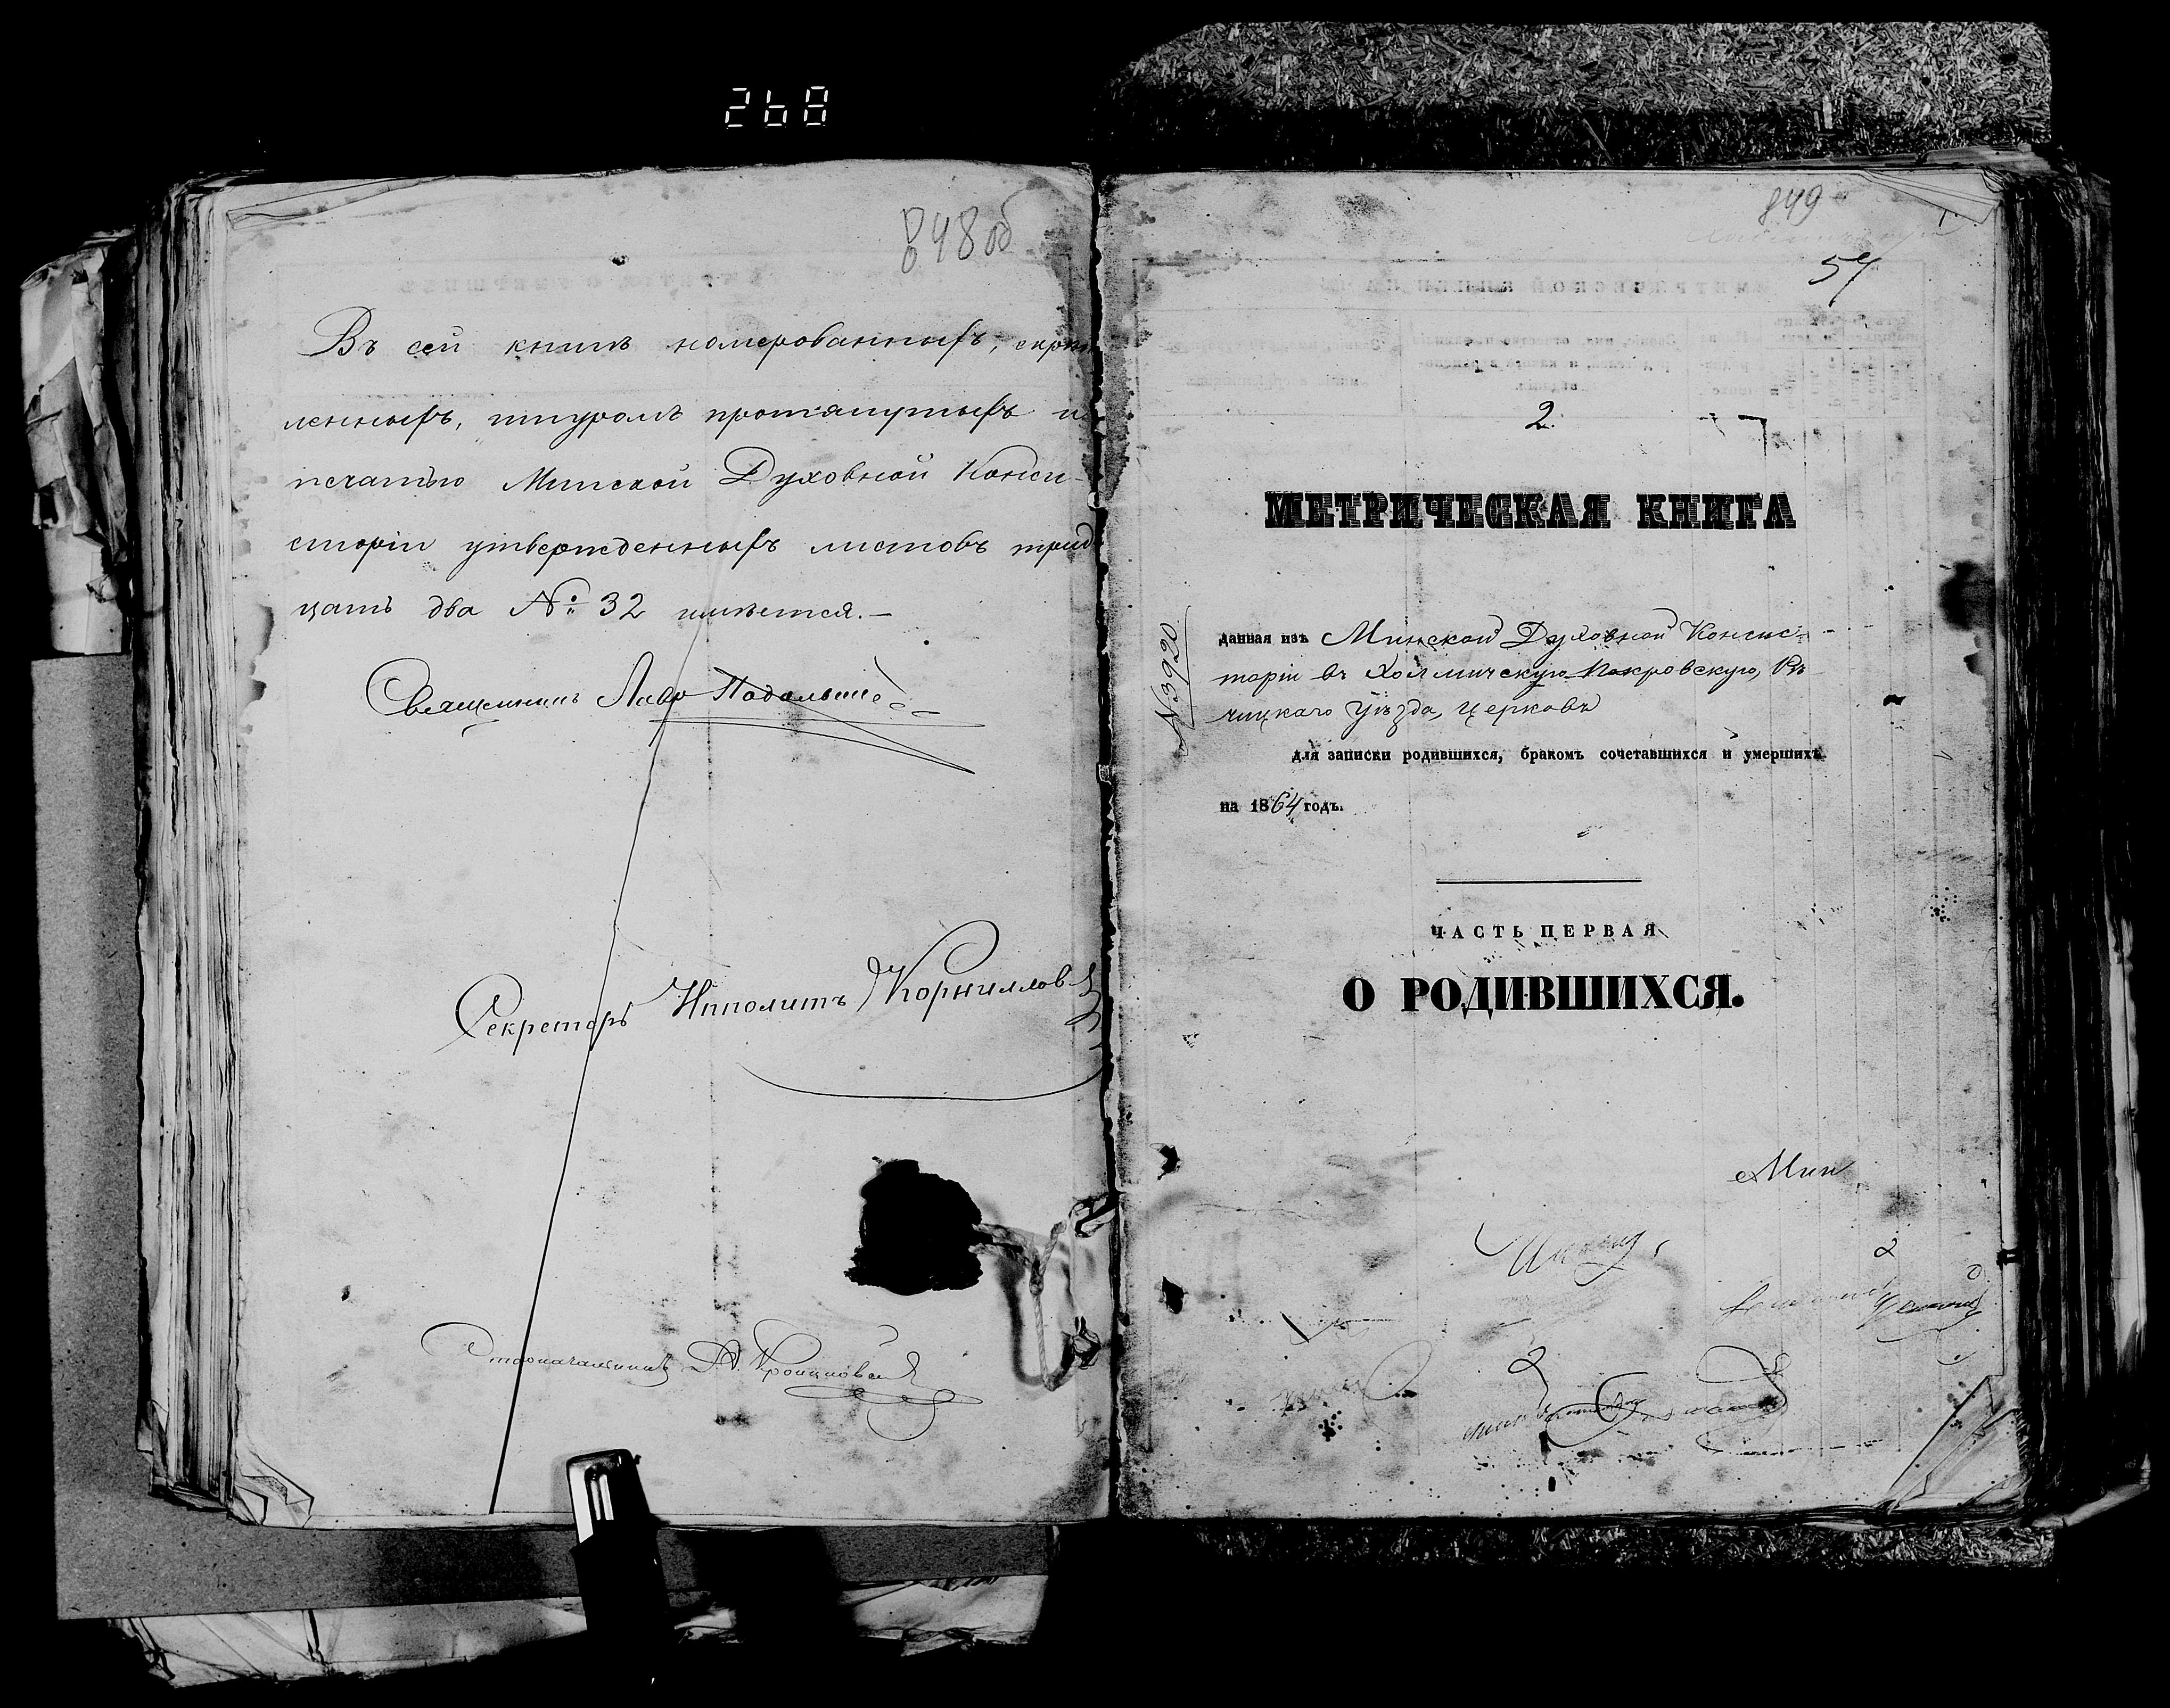 268
848 об
Въ сей книгѣ номерованныхъ, скрѣп
ленныхъ, шнуромъ протянутыхъ и
печатью Минской Духовной Конси-
сторіи утвержденныхъ листовъ трид
цать два № 32 имѣется.—
Священникъ
Секретарь Ипполитъ Корниллов
Столоначальникъ
849
54
2.
МЕТРИЧЕСКАЯ КНИГА
№ 3920
данная изъ Минской Духовной Консис-
торіи въ Холмичскую Покровскую, Рѣ-
чицкаго Уѣзда, церковь
для записки родившихся, бракомъ сочетавшихся и умершихъ
на 1864 годъ.
ЧАСТЬ ПЕРВАЯ
О РОДИВШИХСЯ.
Мин